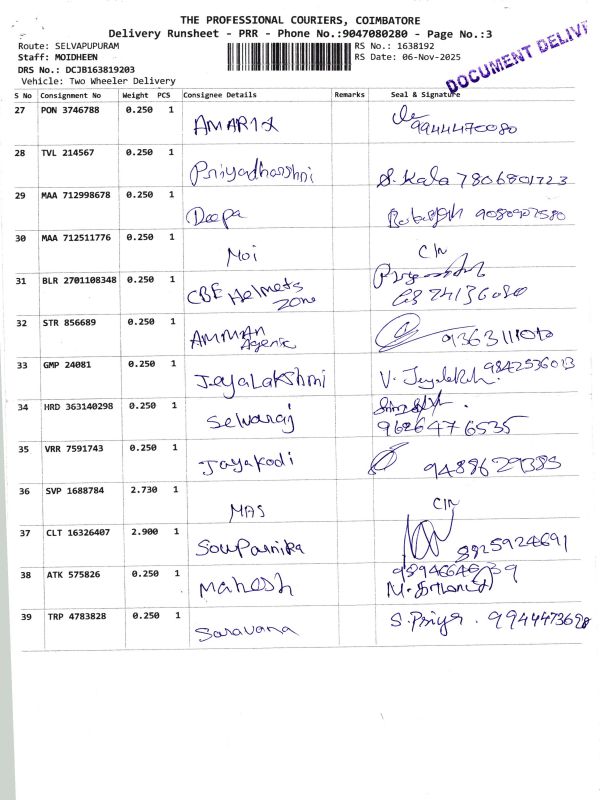 THE PROFESSIONAL COURIERS, COIMBATORE
Delivery Runsheet - PRR - Phone No.:9047080280 - Page No.:3
Route: SELVAPUPURAM RS No.: 1638192
Staff: MOIDHEEN RS Date: 06-Nov-2025
DRS No.: DCJB163819203
Vehicle: Two Wheeler Delivery
DOCUMENT DELIV
S No Consignment No Weight PCS Consignee Details Remarks Seal & Signature
27 PON 3746788 0.250 1 AMAR 9944470080
28 TVL 214567 0.250 1 Priyadharshni S. Kala 7806801723
29 MAA 712998678 0.250 1 Deepa 9080907580
30 MAA 712511776 0.250 1 Moi C/n
31 BLR 2701108348 0.250 1 CBE Helmets Zone 6374136080
32 STR 856689 0.250 1 AMMAN Agenic 9363111010
33 GMP 24081 0.250 1 JayaLakshmi V. Jeyalaksh. 9842536013
34 HRD 363140298 0.250 1 Selvaraj 9626476535
35 VRR 7591743 0.250 1 Jayakodi 9488629385
36 SVP 1688784 2.730 1 MAS C/n
37 CLT 16326407 2.900 1 Souparnika 8925924691
38 ATK 575826 0.250 1 Mahesh
39 TRP 4783828 0.250 1 Saravana S. Priya . 9944473698